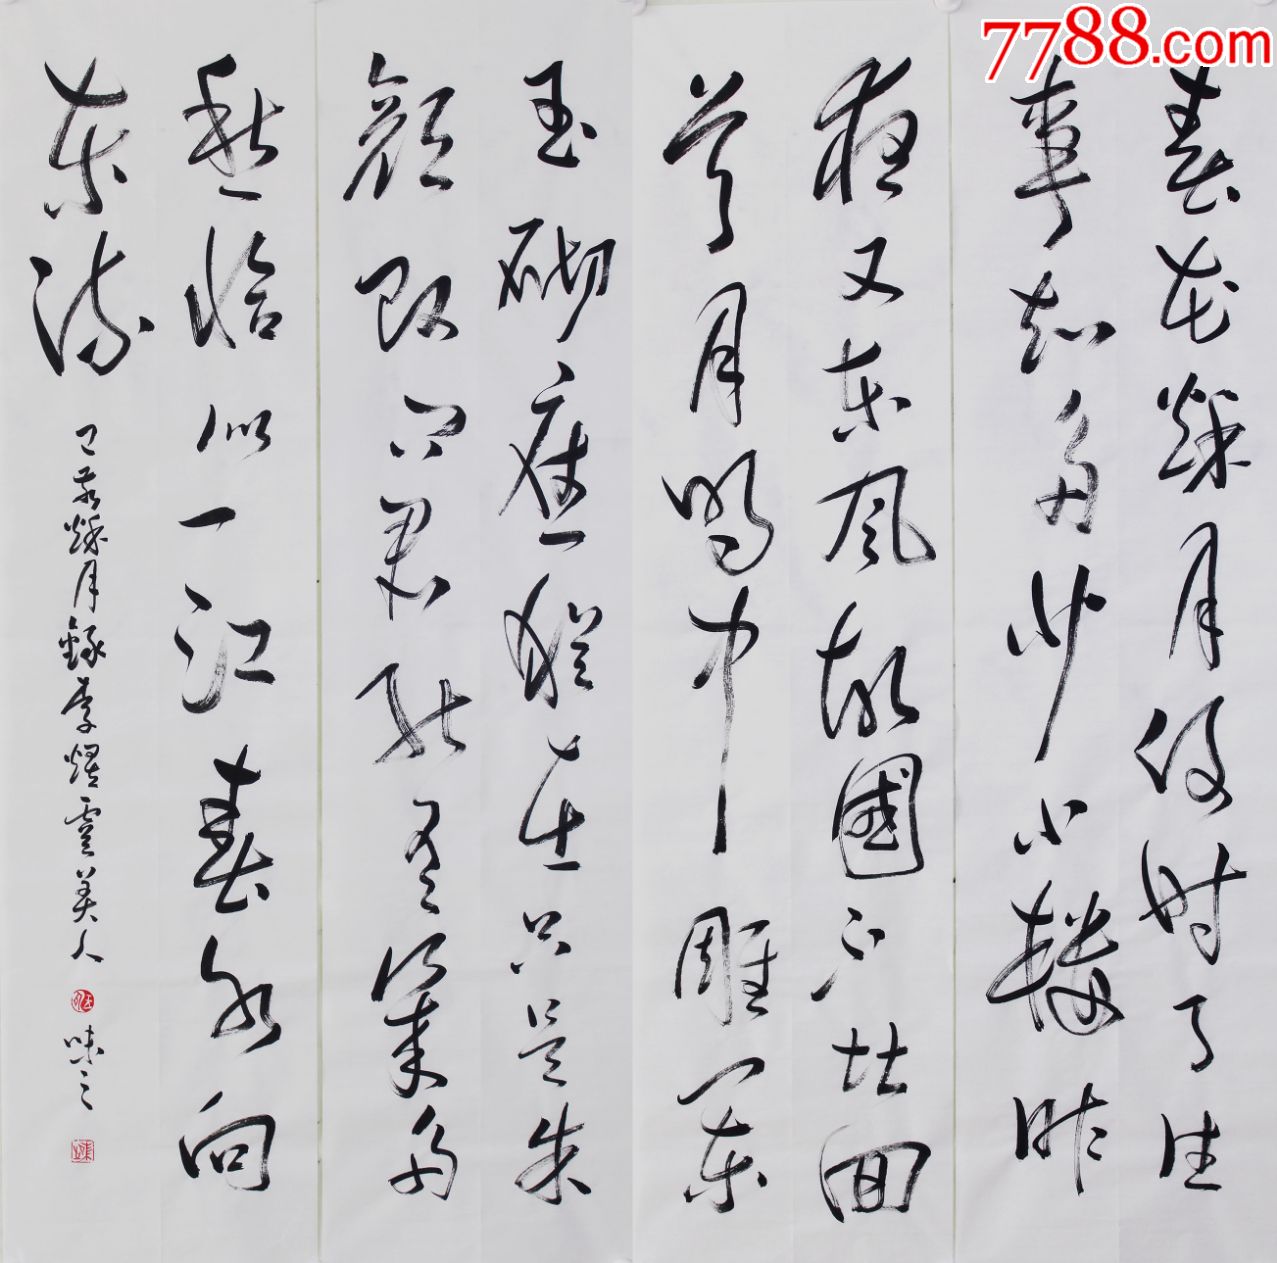 7788.com
春花秋月何時了往
事知多少小樓昨
夜又東風故國不堪回
首月明中雕闌
玉砌應猶在只是朱
顏改問君能有幾多
愁恰似一江春水向
東流
己亥秋月錄李煜虞美人 味之